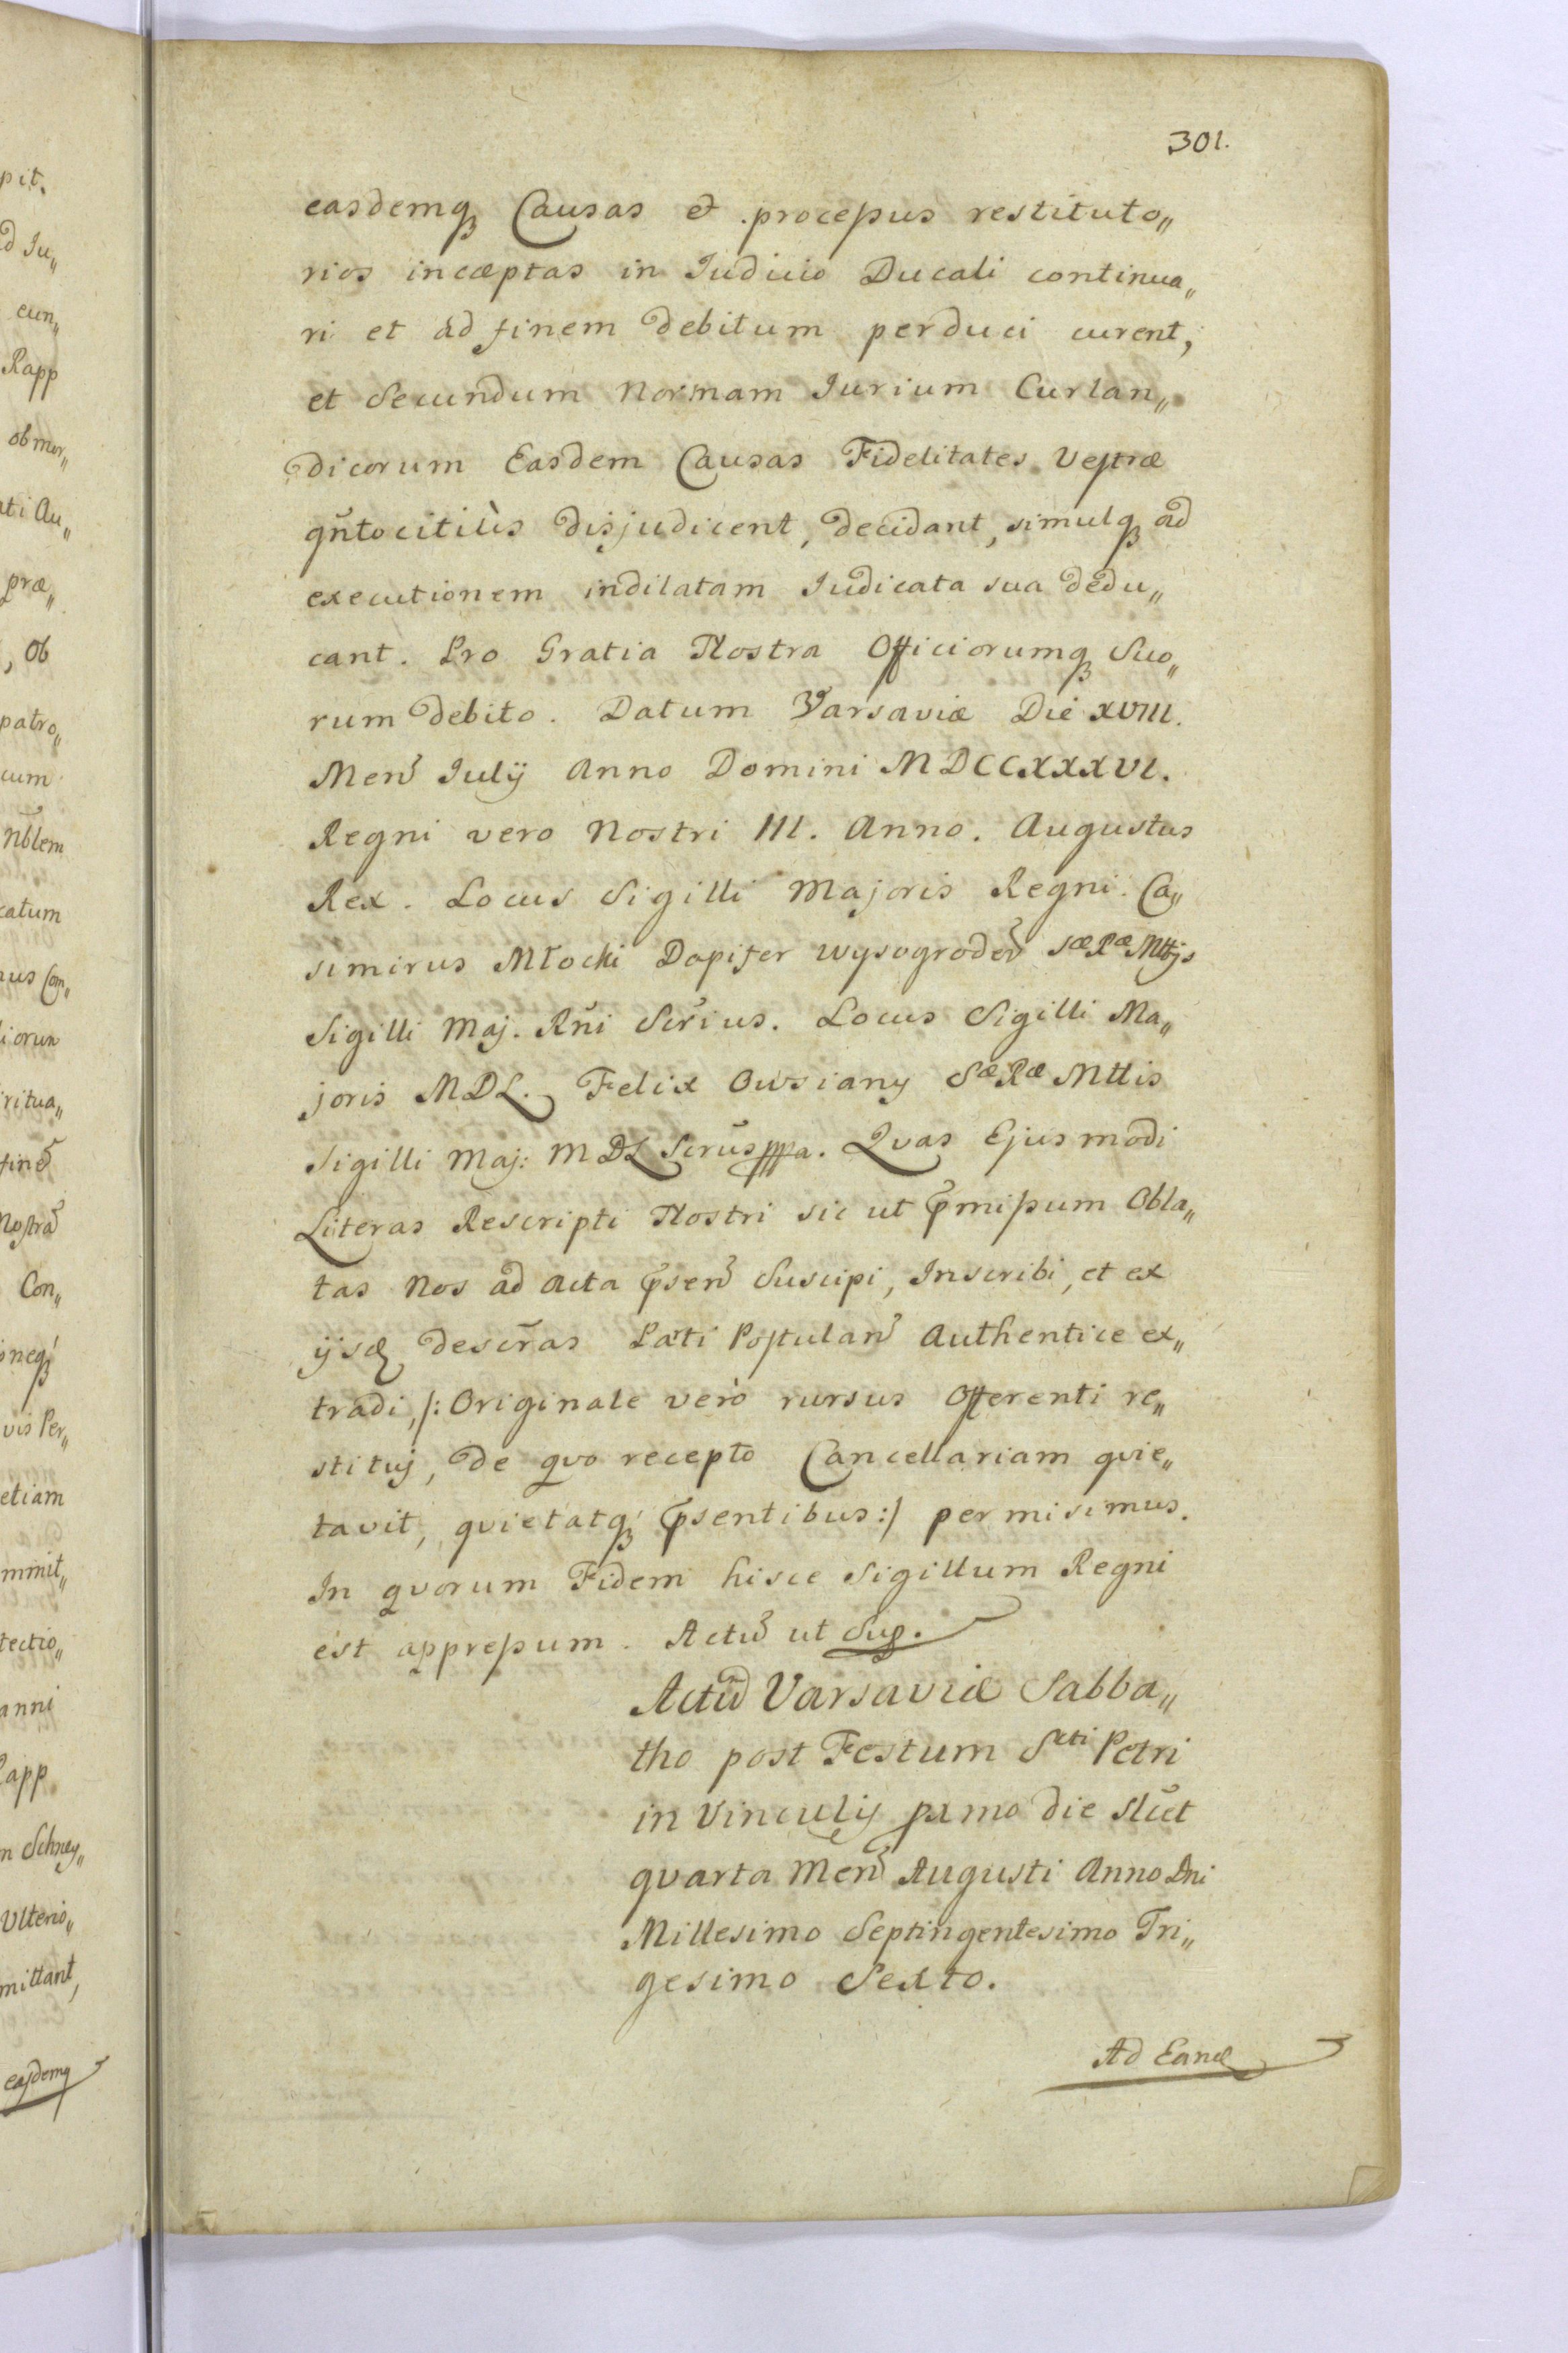 301.
easdemq́ Causas et processus restituto„
rios incæptas in Iudicio Ducali continua„
ri et ad finem debitum perduci curent,
et Secundum Normam Iurium Curlan„
dicorum Easdem Causas Fidelitates Vestræ
qñto citiùs disjudicent, decidant, simulq́ ad
executionem indilatam Iudicata sua dedu„
cant. Pro Gratia Nostra Officiorumq́ Suo„
rum debito. Datum Varsaviæ Die XVIII.
Men̄ Iulij Anno Domini MDCCXXXVI.
Regni vero Nostri III. Anno. Augustus
Rex. Locus Sigilli Majoris Regni. Ca„
simirus Młocki Dapifer Wysogroden̄ Sæ Ræ Mttjs
Sigilli Maj. Rñi Scrius. Locus Sigilli Ma„
joris MDL. Felix Owsiany Sæ Ræ Mttis
Sigilli Maj: MDL Scrus mppa. Qvas Ejusmodi
Literas Rescripti Nostri sic ut p̄missum Obla„
tas Nos ad Acta p̄sen̄ Suscipi, Inscribi, et ex
ijsd descr̄as Par̄ti Postulan̄ Authentice ex„
tradi, /: Originale verò rursus Offerenti re„
stituj, de qvo recepto Cancellariam qvie„
tavit, qvietatq́ p̄sentibus :/ permisimus.
In qvorum Fidem hisce Sigillum Regni
est appressum. Actu̅ ut Sup.
Actu̅ Varsaviæ Sabba„
tho post Festum Scti Petri
in Vinculis pxmo die slcet
qvarta Men̄ Augusti Anno Dni
Millesimo Septingentesimo Tri„
gesimo Sexto.
Ad Eand
pit.
d Iu„
cun„
Rapp
ob mor„
ti Au„
præ„
, Ob
patro„
cum
Nõblem
catum
us Com„
iorum
ritua„
fine̅
Nostra̅
Con„
oneq́
vis Per„
etiam
mmit„
tectio„
anni
Rapp
n Schney„
Ulterio„
mittant,
easdemq